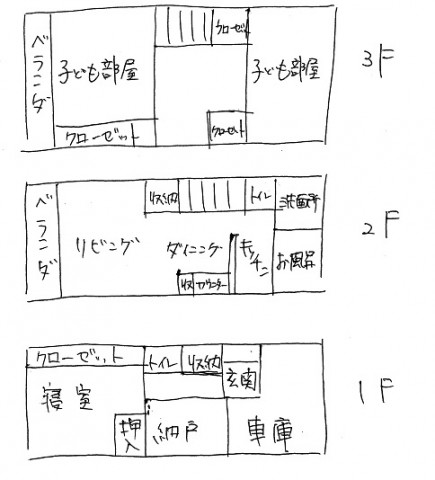 ベランダ
子ども部屋
クローゼット
クローゼット
クローゼット
子ども部屋
3F
ベランダ
リビング
収納
ダイニング
収
カウンター
トイレ
キッチン
洗面所
お風呂
2F
クローゼット
寝室
押入
トイレ
収納
玄関
納戸
車庫
1F